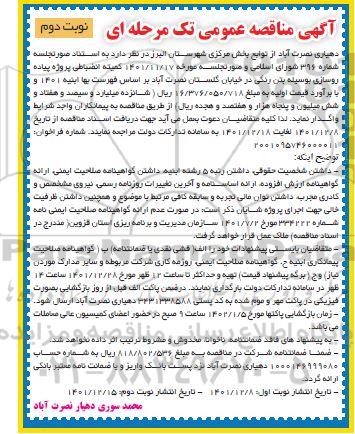 آگهی مناقصه عمومی تک مرحله ای
نوبت دوم
دهیاری نصرت آباد از توابع بخش مرکزی شهرستان البرز در نظر دارد به استناد صورتجلسه
شماره ۳۹۶ شورای اسلامی و صورتجلسه مورخه ۱۴۰۱/۱۱/۱۷ کمیته انضباطی پروژه پیاده
روسازی بوسیله بتن رنگی در خیابان گلستان نصرت آباد بر اساس فهرست بها ابنیه ۱۴۰۱ و
با برآورد قیمت اولیه به مبلغ ۱۶/۳۷۶/۰۵۰/۷۱۸ ریال (شانزده میلیارد و سیصد و هفتاد و
شش میلیون و پنجاه هزار و هفتصد و هجده ریال) از طریق مناقصه به پیمانکاران واجد شرایط
واگذار نماید. لذا کلیه متقاضیان دعوت بعمل می آید جهت دریافت اسناد مناقصه از تاریخ
۱۴۰۱/۱۲/۸ لغایت ۱۴۰۱/۱۲/۱۸ به سامانه تدارکات دولت مراجعه نمایند. شماره فراخوان:
۲۰۰۱۰۹۵۷۴۶۰۰۰۰۱۱
توضیح اینکه:
- داشتن شخصیت حقوقی، داشتن رتبه ۵ رشته ابنیه، داشتن گواهینامه صلاحیت ایمنی، ارائه
گواهینامه ارزش افزوده، ارائه اساسنامه و آخرین تغییرات روزنامه رسمی، نیروی متخصص و
کادری مجرب، داشتن توان مالی تجربه و سابقه کافی مرتبط با موضوع و همچنین داشتن ظرفیت
خالی جهت اجرای پروژه شایان ذکر است: در صورت عدم ارائه گواهینامه صلاحیت ایمنی نامه
شماره ۳۳۴۲۲۲ مورخ ۱۴۰۱/۷/۲ سازمان مدیریت و برنامه ریزی استان قزوین( مندرج در
اسناد مناقصه) ملاک عمل قرار خواهد گرفت.
- متقاضیان بایستی پیشنهادات خود را الف( فیش نقدی یا ضمانتنامه) ب ( گواهینامه صلاحیت
پیمانکاری ابنیه ج، گواهینامه صلاحیت ایمنی، روزمه کاری شرکت مربوطه و سایر مدارک موردن
نیاز) وج ( برگه پیشنهاد قیمت) تهیه و حداکثر تا ساعت ۱۲ ظهر مورخ ۱۴۰۱/۱۲/۲۸ ساعت ۱۴
ظهر در سامانه تدارکات دولت بارگذاری نمایند. درضمن پاکت الف قبل از روز بازگشایی بصورت
فیزیکی در پاکت مهر و موم شده به کد پستی ۳۴۳۱۳۳۸۵۸۸ دهیاری نصرت آباد ارسال شود.
- زمان بازگشایی پاکتها مورخ ۱۴۰۲/۱/۵ ساعت ۹ صبح در حضور اعضای کمیسیون عالی معاملات
می باشد.
- به پیشنهاد های فاقد ضمانتنامه، ناخوانا، مخدوش و مشروط ترتیب اثر داده نخواهد شد.
- ضمنــا ضمانتنامه شــرکت در مناقصــه بــه مبلغ ۸۱۸/۸۰۲/۵۳۶ ریال به شــماره حســاب
۱۰۰۰۱۴۶۹۹۹۰۸۰ دهیاری نصرت آباد نزد پست بانک واریز و یا ضمانت نامه معتبر بانکی
ارائه گردد.
- تاریخ انتشار نوبت اول: ۱۴۰۱/۱۲/۸ - تاریخ انتشار نوبت دوم: ۱۴۰۱/۱۲/۱۵
محمد سوری دهیار نصرت آباد